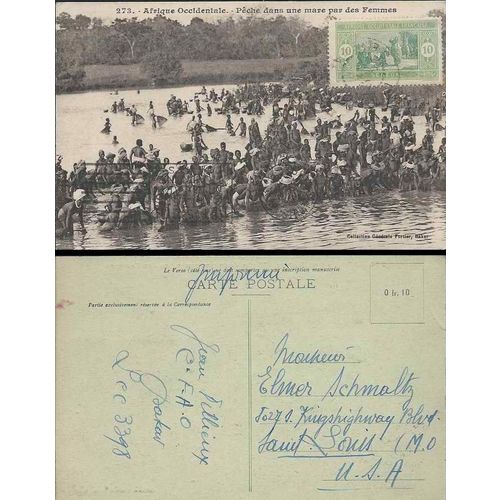 273. - Afrique Occidentale. - Pêche dans une mare par des Femmes
10 10
Collection Générale Fortier, Dakar
CARTE POSTALE
Partie exclusivement réservée à la Correspondance
0 fr. 10
Monsieur
Elmer Schmaltz
Kingshighway Blvd.
Saint Louis (M.O
U.S.A
Jean
C.F.A.O
Dakar
L CC 3398